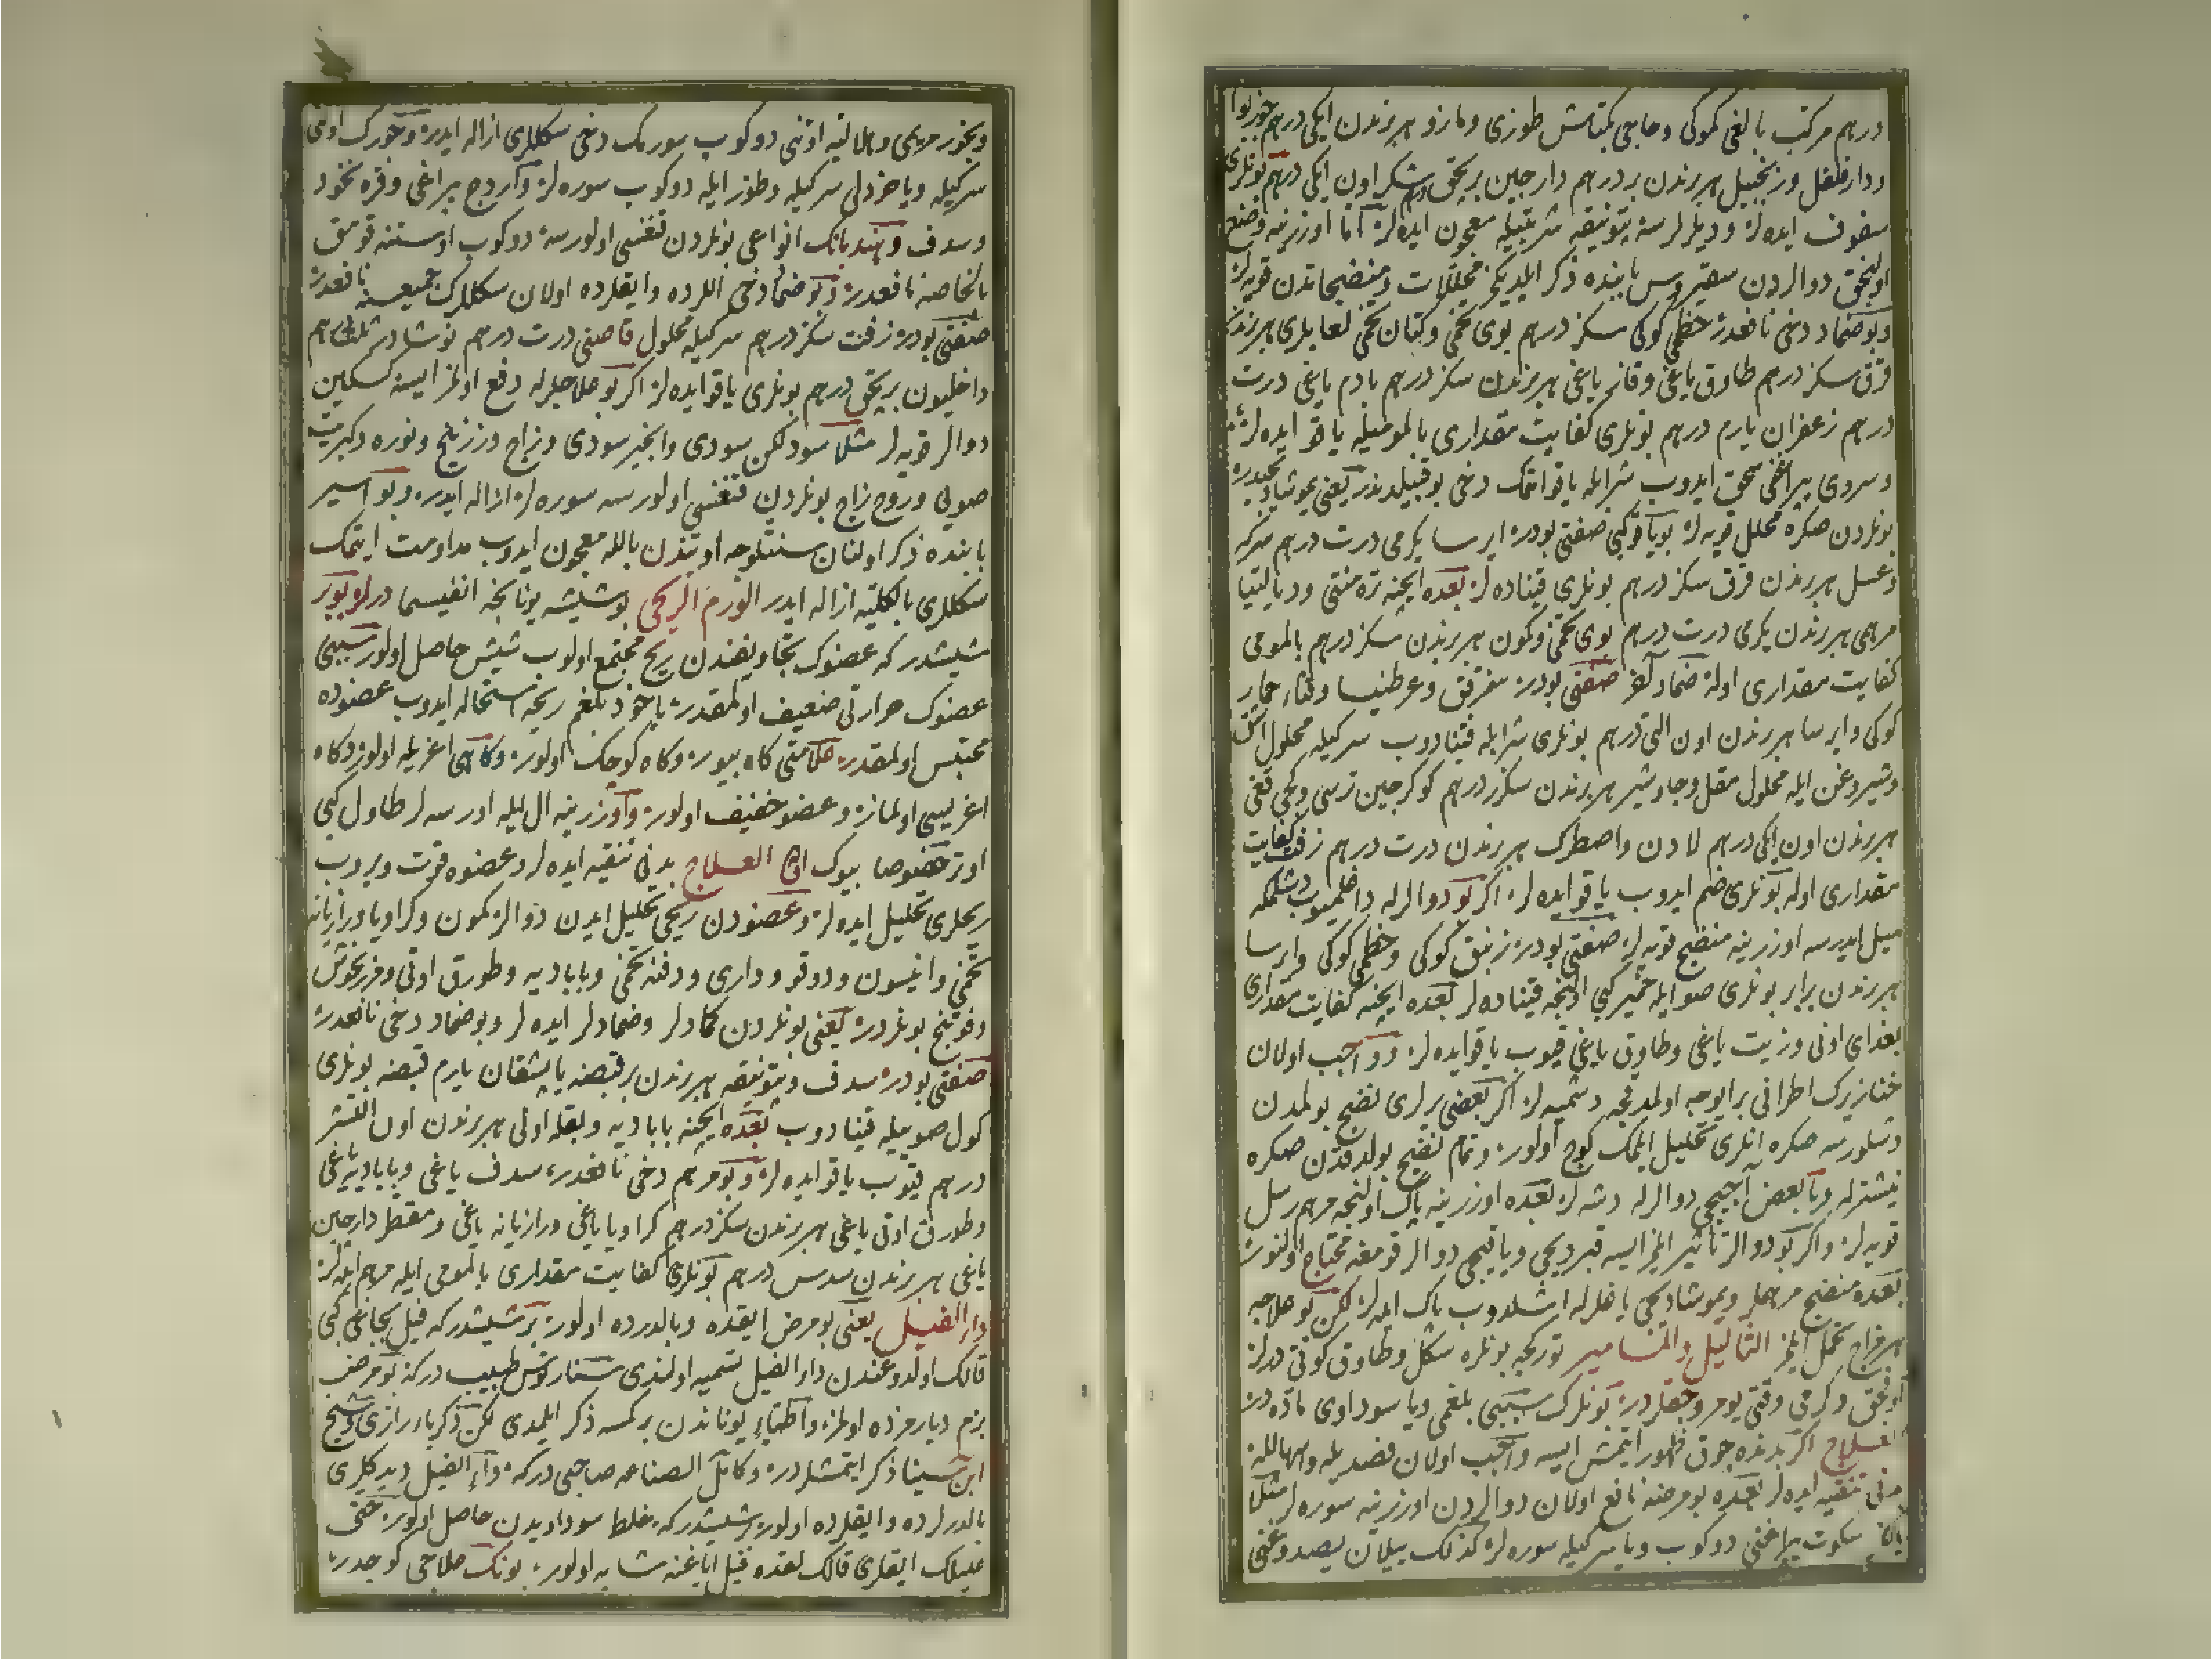 درهم مركب بالغى كموكى وحاجى بكتاش طوزى ومازو هر بربرندن ايكى درهم جوزبوا
ودارفلفل وزنجبيل هر برندن بر درهم دارجين بر بچق درهم شكر اون ايكى درهم بونلرى
سفوف ايده لر وديلرلرسه بتونيقه شربتيله معجون ايده لر اما اوزرينه وضع
اولنجق دوالردن سقيروس بابنده ذكر ايلديكمز محللات ومنضجاتدن قويه لر
وبو ضماد دخى نافعدر خطمى كوكى سكز درهم بوى تخمى وكتان تخمى لعابلرى هر برندن
قرق سكز درهم طاوق ياغى وقاز ياغى هر برندن سكز درهم بادم ياغى درت
درهم زعفران يارم درهم بونلرى كفايت مقدارى بالموميله ياقو ايده لر
وسروى يپراغنى سحق ايدوب شرابله ياقو ايتمك دخى بو قبيلدندر يعنى يوشاديجيدر
بونلردن صكره محلل قويه لر بو ياقو كبى صفتى بودر ايرسا يكرمى درت درهم سركه
وعسل هر برندن قرق سكز درهم بونلرى قيناده لر بعده ايچنه تره منتى وديالتيا
مرهمى هر برندن يكرمى درت درهم بوى تخمى وكمون هر برندن سكز درهم بالمومى
كفايت مقدارى اوله ضماد آخر صفتى بودر وعرطنيسا وقثاء حمار
كوكى وايرسا هر برندن اون التى درهم بونلرى شرابله قينادوب سركيله محلول اشق
وشيروغن ايله محلول مقل وجاوشير هر برندن سكز درهم كوكرجين ترسى وكچى قغى
هر برندن اون ايكى درهم لادن واصطرك هر برندن درت درهم زفت كفايت
مقدارى اوله بونلرى ضم ايدوب ياقو ايده لر اكر بو دوالرله داخليوب دشلمكه
ميل ايدرسه اوزرينه منضج قويه لر صفتى بودر زنبق كوكى وخطمى كوكى وايرسا
هر برندن برابر بونلرى صو ايله خمير كبى اولنجه قيناده لر بعده ايچنه كفايت مقدارى
بغداى اونى وزيت ياغى وطاوق ياغى قيوب ياقو ايده لر وواجب اولان
خنازيرك اطرافى برابرجه اولمدقجه دشميه لر اكر بعضى يرلرى نضج بولمدن
دشلورسه صكره انلرى تحليل ايلمك كوج اولور وتمام نضج بولدقدن صكره
نيشترله ويا بعض اچيجى دوالرله دشه لر بعده اوزرينه پاك اولنجه مرهم رسل
قويه لر واكر بو دوالر تأثير ايلمز ايسه قيريجى ويا قيجى دوالر قومغه محتاج اولنور
بعده منضج مرهملر ويوشاديجى ياغلرله ايشلدوب پاك ايده لر لكن بو علاجه
هر مزاج تحمل ايلمز الثاليل والمسامير توركجه بونلره سكل وطاوق كوتى ديرلر
وقتى يومروجقلردر بونلرك سببى بلغمى ويا سوداوى ماده در
العلاج اكر بدنده چوق ظهور ايتمش ايسه واجب اولان فصد ايله واسهالله
بدنى تنقيه ايده لر بعده بو مرضه نافع اولان دوالردن اوزرينه سوره لر مثلا
سكوت يپراغنى دوكوب ويا سركيله سوره لر كذلك ييلان يصدوغنى
وبخور مريمى وهلاليه اوتنى دوكوب سورمك دخى سكللرى ازاله ايدر وخورك اونى
سركيله ويا خردلى سركيله وطوز ايله دوكوب سوره لر وآردج يپراغى وقره نخود
وسدف وهندبانك انواعى بونلردن قنغسى اولورسه دوكوب اوستنه قومق
بالخاصه نافعدر وبو ضماد دخى اللرده وايقلرده اولان سكللرك جميعسنه نافعدر
صفتى بودر زفت سكز درهم سركيله محلول قاصنى درت درهم نوشادر ثلث درهم
داخليون بر بچق درهم بونلرى ياقو ايده لر اكر بو علاجلرله دفع اولمز ايسه كسكين
دوالر قويه لر مثلا سودلكن سودى وانجير سودى وزاج وزرنيخ ونوره وكبريت
صويى وروح زاج بونلردن قنغسى اولورسه سوره لر ازاله ايدر وبواسير
بابنده ذكر اولنان سنتلوجه اوتندن بالله معجون ايدوب مداومت ايتمك
سكللرى بالكليه ازاله ايدر الورم الريحى بو شيشه يونانجه انفيسما ديرلر بو بر
شيشدر كه عضوك تجاويفندن ريح مجتمع اولوب شيش حاصل اولور سببى
عضوك حرارتى ضعيف اولمقدر ياخود بلغم ريحه استحاله ايدوب عضوده
محتبس اولمقدر علامتى كاه بيور وكاه كوچك اولور وكاهى اغريله اولور وكاه
اغريسى اولماز وعضو خفيف اولور واوزرينه ال ايله اورسه لر طاول كبى
اوتر خصوصا بيوك اوله العلاج بدنى تنقيه ايده لر وعضوه قوت ويروب
ريحلرى تحليل ايده لر وعضودن ريحى تحليل ايدن دوالر كمون وكراويا ورازيانه
تخمى وانيسون ودوقو ودارى ودفنه تخمى وبابادیه وطورق اوتى ومرزنجوش
وفوتنج بونلردر يعنى بونلردن كمادلر وضمادلر ايده لر وبو ضماد دخى نافعدر
صفتى بودر سدف وبتونيقه هر برندن بر قبضه ياپشقان يارم قبضه بونلرى
كول صوييله قينادوب بعده ايچنه بابادیه وبقله اونى هر برندن اون التشر
درهم قيوب ياقو ايده لر وبو مرهم دخى نافعدر سدف ياغى وبابادیه ياغى
وطورق اوتى ياغى هر برندن سكز درهم كراويا ياغى ورازيانه ياغى ومقطر دارچين
ياغى هر برندن سدس درهم بونلرى كفايت مقدارى بالمومى ايله مرهم ايده لر
داء الفيل يعنى بو مرض ايقده وبالدرده اولور بر شيشدر كه فيل بجاغى كبى
قالك اولدوغندن داء الفيل تسميه اولندى طبيب ديركه بو مرض
بزم ديارمزده اولمز واطباء يوناندن بر كمسه ذكر ايلمدى لكن ذكريا رازى وشيخ
ابن سينا ذكر ايتمشلردر وكامل الصناعه صاحبى ديركه داء الفيل ديدكلرى
بالدرلرده وايقلرده اولور بر شيشدر كه غليظ سودادن حاصل اولور حتى
عليلك ايقلرى قالك لقده فيل اياغنه مشابه اولور بونك علاجى كوجدر